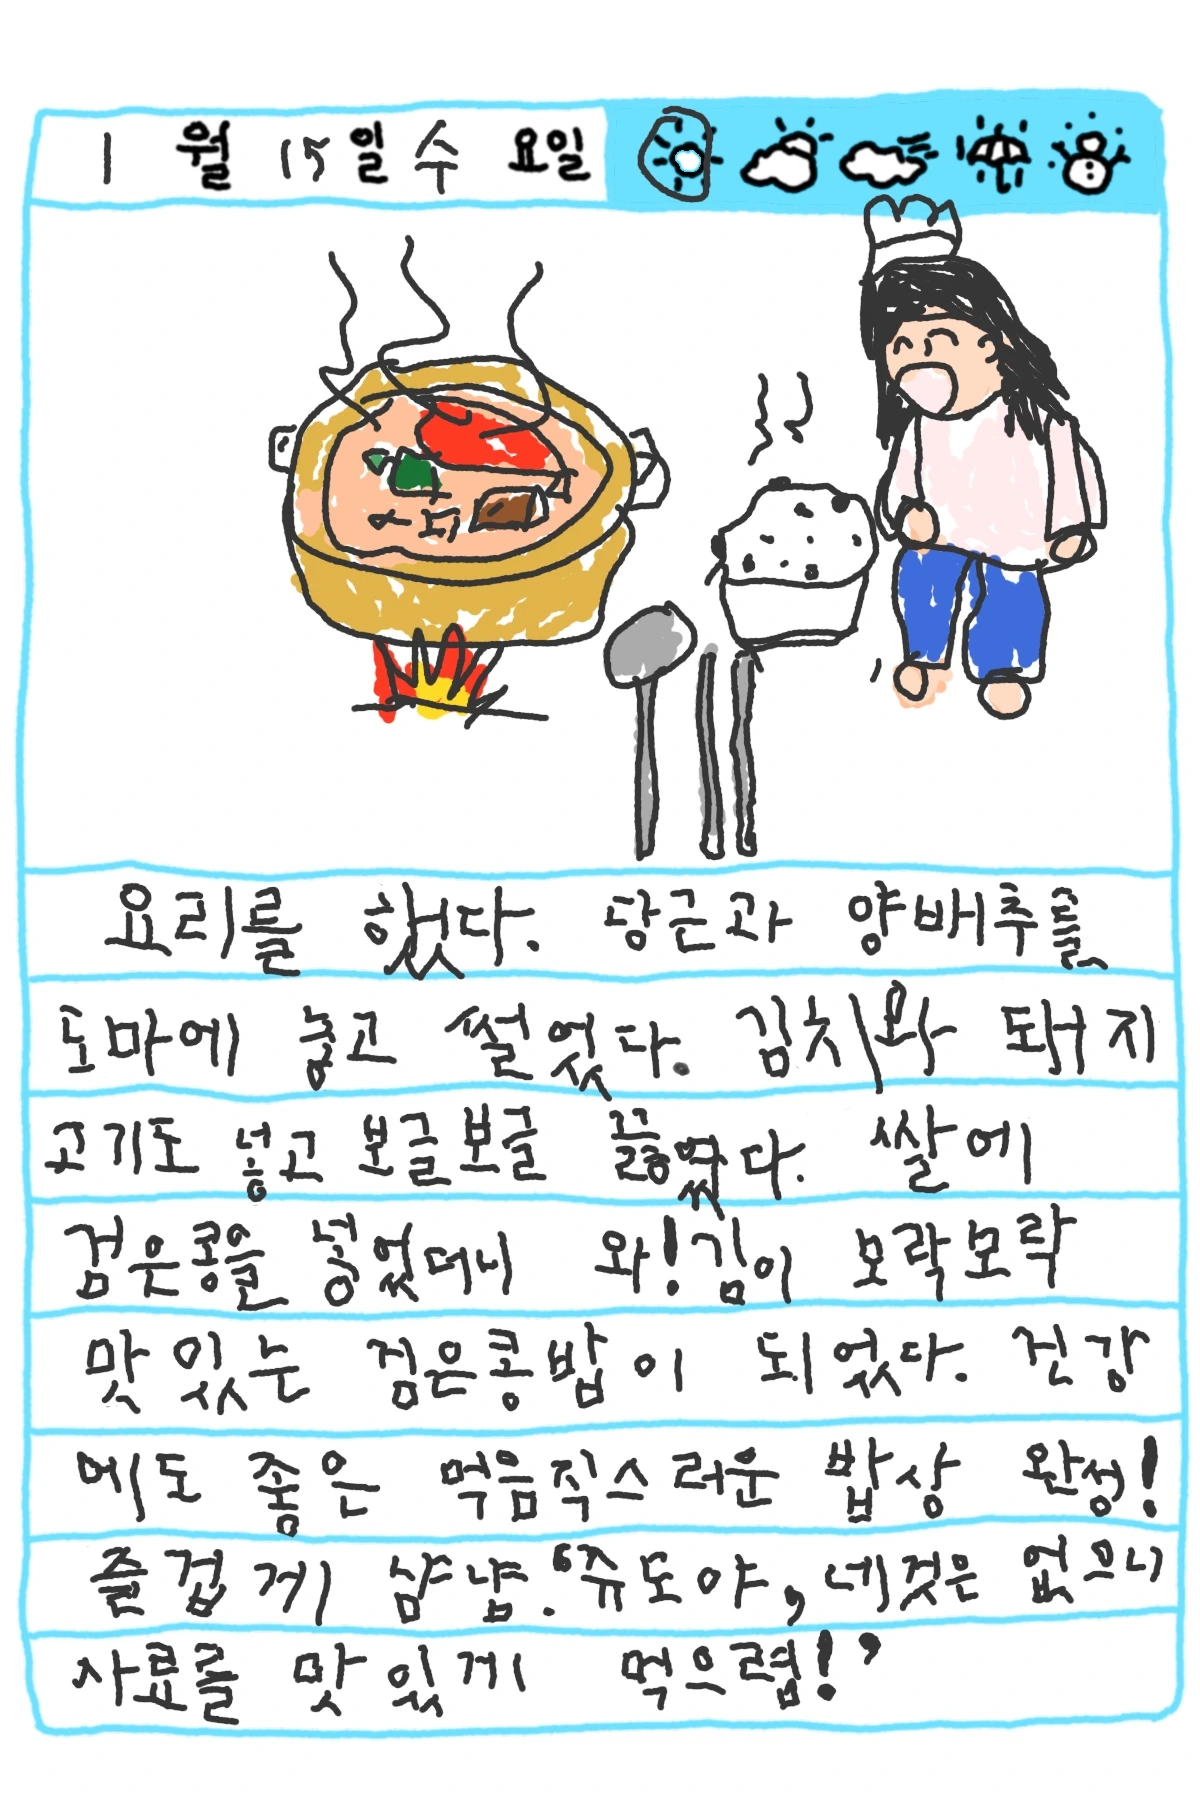 1월 15일 수요일
요리를 했다. 당근과 양배추를
도마에 놓고 썰었다. 김치와 돼지
고기도 넣고 보글보글 끓였다. 쌀에
검은콩을 넣었더니 와! 김이 모락모락
맛있는 검은콩밥이 되었다. 건강
에도 좋은 먹음직스러운 밥상 완성!
즐겁게 샴냡. "쥬도야, 네것은 없으니
사료를 맛있게 먹으렴!"